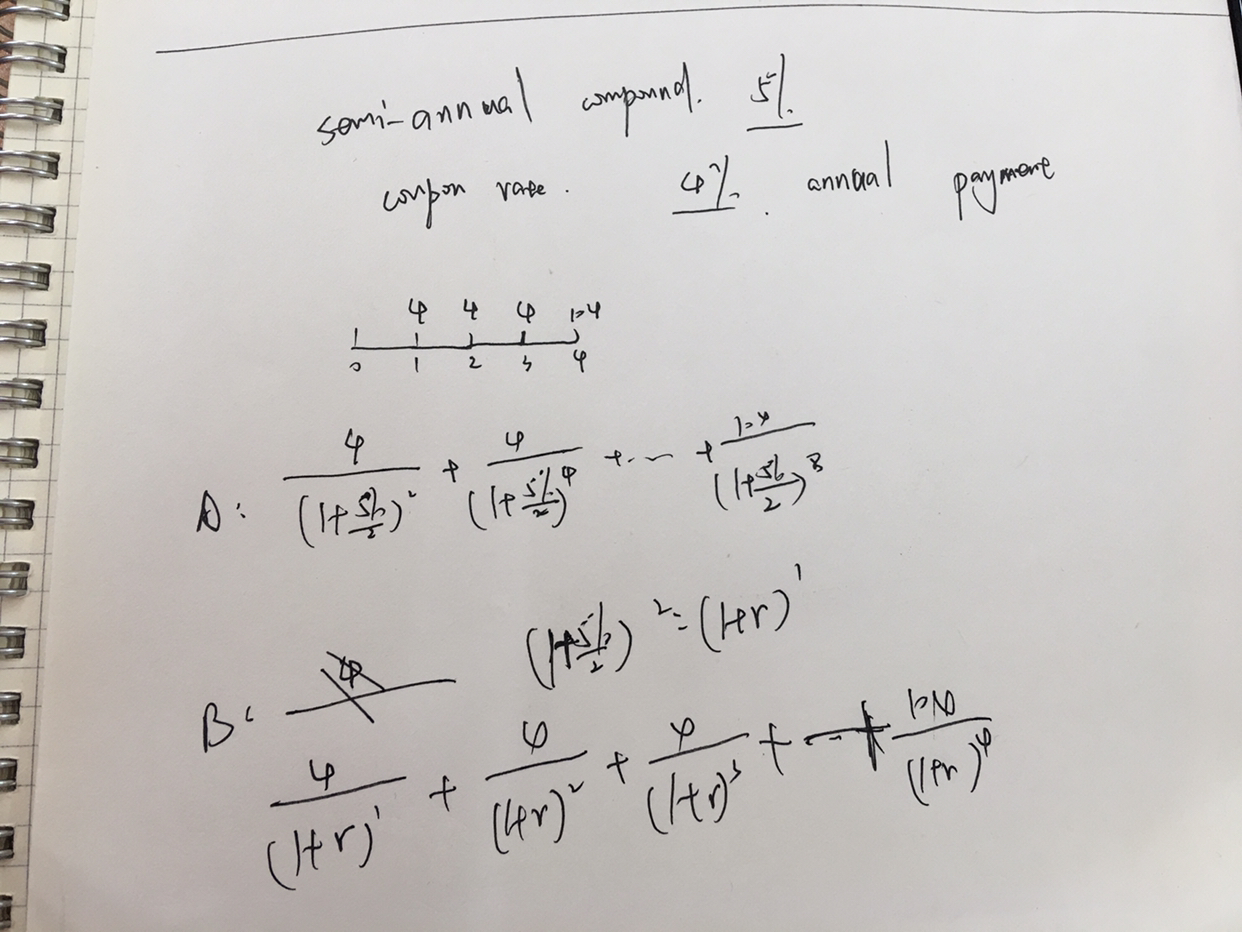 semi-annual compound. 5%
coupon rate. 4%. annual payment
4 4 4 104
0 1 2 3 4
A: 4/(1+5%/2)^2 + 4/(1+5%/2)^4 + ... + 104/(1+5%/2)^8
(1+5%/2)^2 = (1+r)^1
B:
4/(1+r)^1 + 4/(1+r)^2 + 4/(1+r)^3 + 104/(1+r)^4